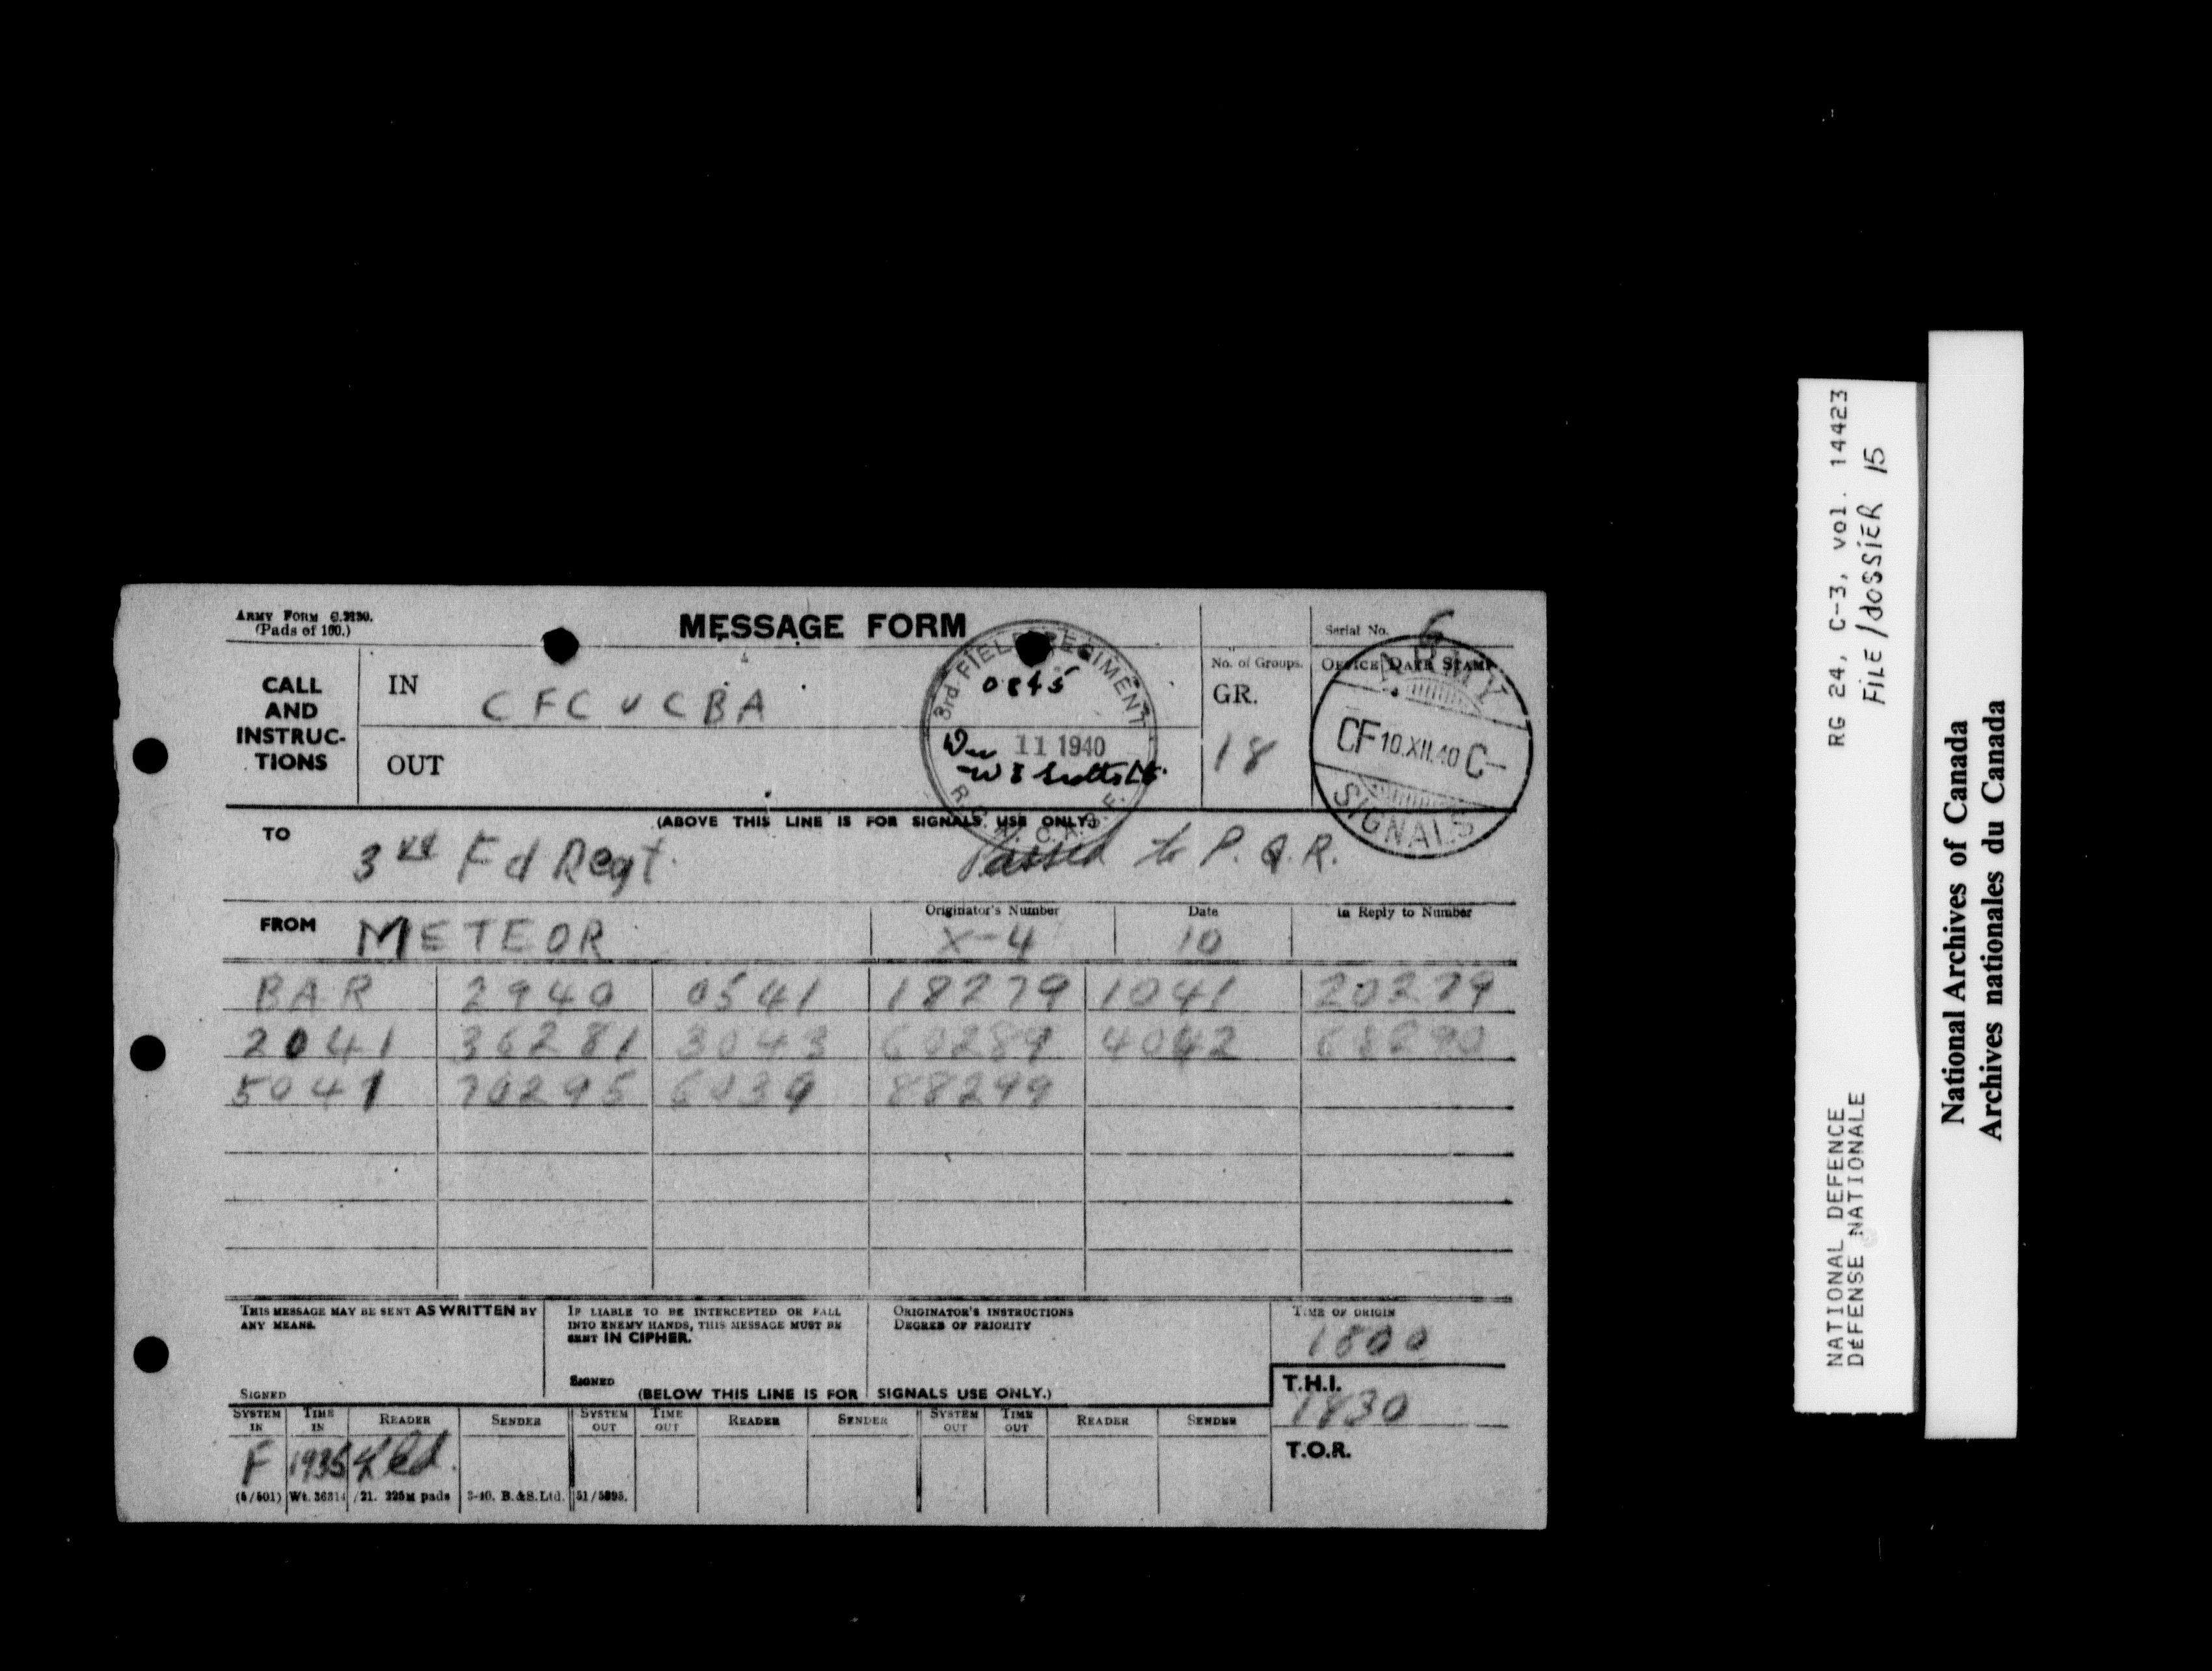 ARMY FORM C.2130.
(Pads of 100.)
MESSAGE FORM
Serial No. 6
CALL AND INSTRUC-TIONS
IN CFC v CBA
OUT
No. of Groups.
GR.
18
OFFICE DATE STAMP
ARMY
CF 10.XII.40 C-
SIGNALS
3rd FIELD REGIMENT
0845
11 1940
(ABOVE THIS LINE IS FOR SIGNALS USE ONLY.)
TO 3rd Fd Regt. Passed to P.Q.R.
FROM METEOR
Originator's Number X-4
Date 10
In Reply to Number
BAR 2940 0541 18279 1041 20279
2041 36281 3043 60289 4042 68290
5041 70295 6039 88299
THIS MESSAGE MAY BE SENT AS WRITTEN BY ANY MEANS.
SIGNED
IF LIABLE TO BE INTERCEPTED OR FALL INTO ENEMY HANDS, THIS MESSAGE MUST BE SENT IN CIPHER.
SIGNED
ORIGINATOR'S INSTRUCTIONS
DEGREE OF PRIORITY
TIME OF ORIGIN
1800
(BELOW THIS LINE IS FOR SIGNALS USE ONLY.)
T.H.I.
1830
T.O.R.
SYSTEM IN TIME IN READER SENDER SYSTEM OUT TIME OUT READER SENDER SYSTEM OUT TIME OUT READER SENDER
F 1935
(5/501) Wt. 36314/21. 225M pads 3-40. B.&S.Ltd. 51/5895.
RG 24, C-3, vol. 14423
FILE/dossier 15
NATIONAL DEFENCE
DÉFENSE NATIONALE
National Archives of Canada
Archives nationales du Canada